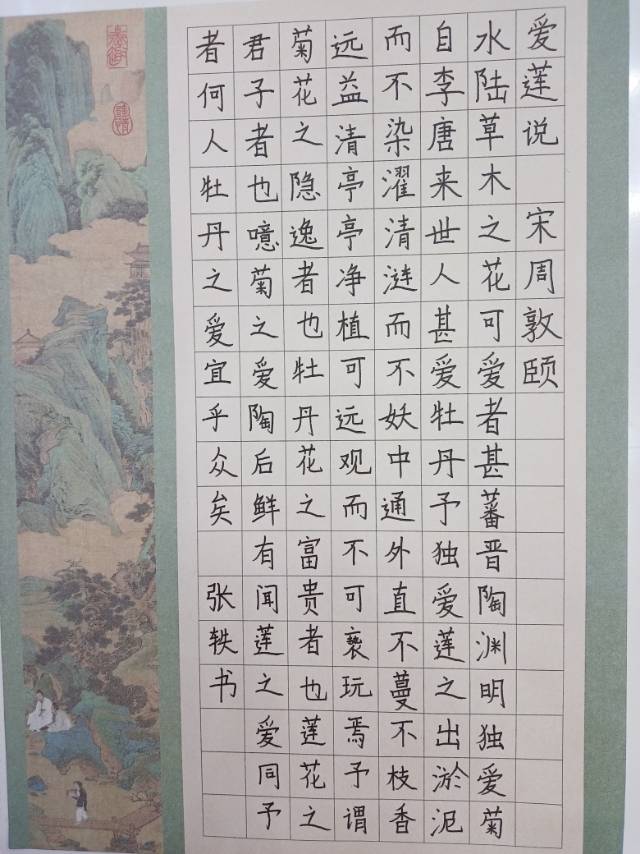 爱莲说 宋周敦颐
水陆草木之花可爱者甚蕃晋陶渊明独爱菊
自李唐来世人甚爱牡丹予独爱莲之出淤泥
而不染濯清涟而不妖中通外直不蔓不枝香
远益清亭亭净植可远观而不可亵玩焉予谓
菊花之隐逸者也牡丹花之富贵者也莲花之
君子者也噫菊之爱陶后鲜有闻莲之爱同予
者何人牡丹之爱宜乎众矣 张轶书